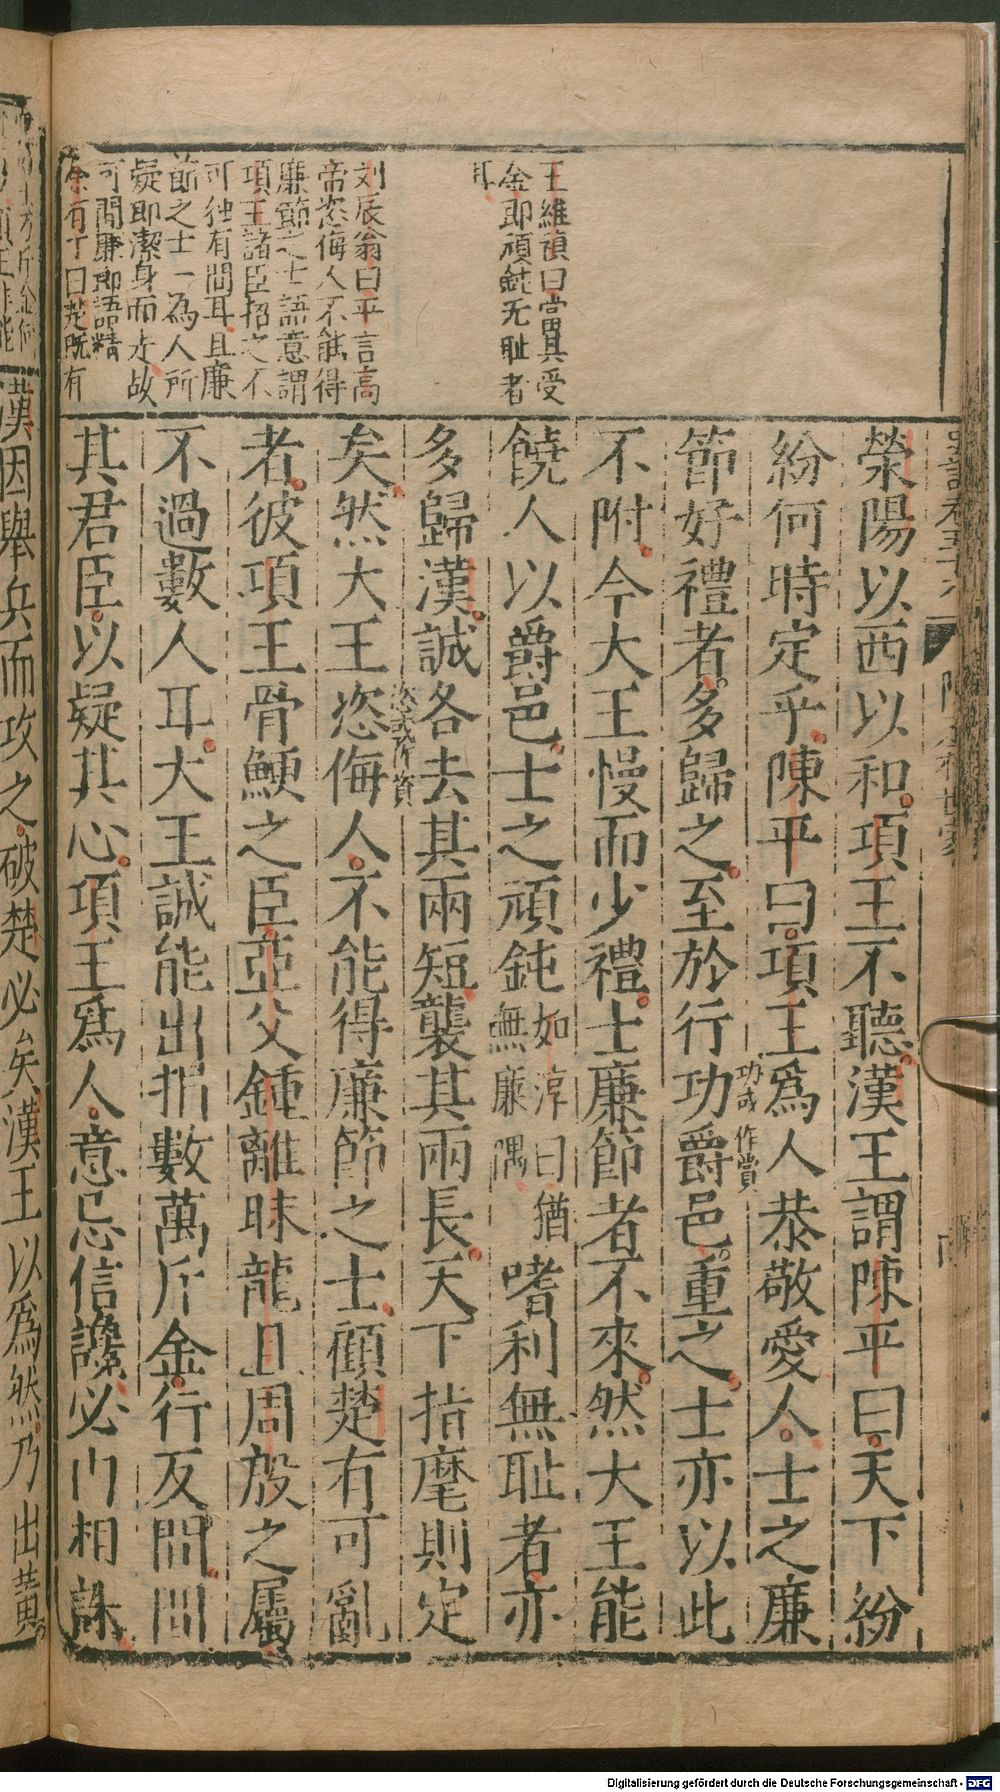 王維禎曰當其受
金即頑鈍无耻者
耳
刘辰翁曰平言高
帝恣侮人不能得
廉節之士語意謂
項王諸臣招之不
可独有間耳且廉
節之士一為人所
疑即潔身而去故
可間廉節語精
余有丁曰楚既有
滎陽以西以和項王不聽漢王謂陳平曰天下紛
紛何時定乎陳平曰項王爲人恭敬愛人士之廉
節好禮者多歸之至於行功爵邑重之士亦以此
功或作賞
不附今大王慢而少禮士廉節者不來然大王能
饒人以爵邑士之頑鈍如淳曰猶無廉隅嗜利無耻者亦
多歸漢誠各去其兩短襲其兩長天下指麾則定
矣然大王恣侮人不能得廉節之士顧楚有可亂
恣或作資
者彼項王骨鯁之臣亞父鍾離眛龍且周殷之屬
不過數人耳大王誠能出捐數萬斤金行反間間
其君臣以疑其心項王爲人意忌信讒必內相誅
漢因舉兵而攻之破楚必矣漢王以爲然乃出黃
Digitalisierung gefördert durch die Deutsche Forschungsgemeinschaft - DFG